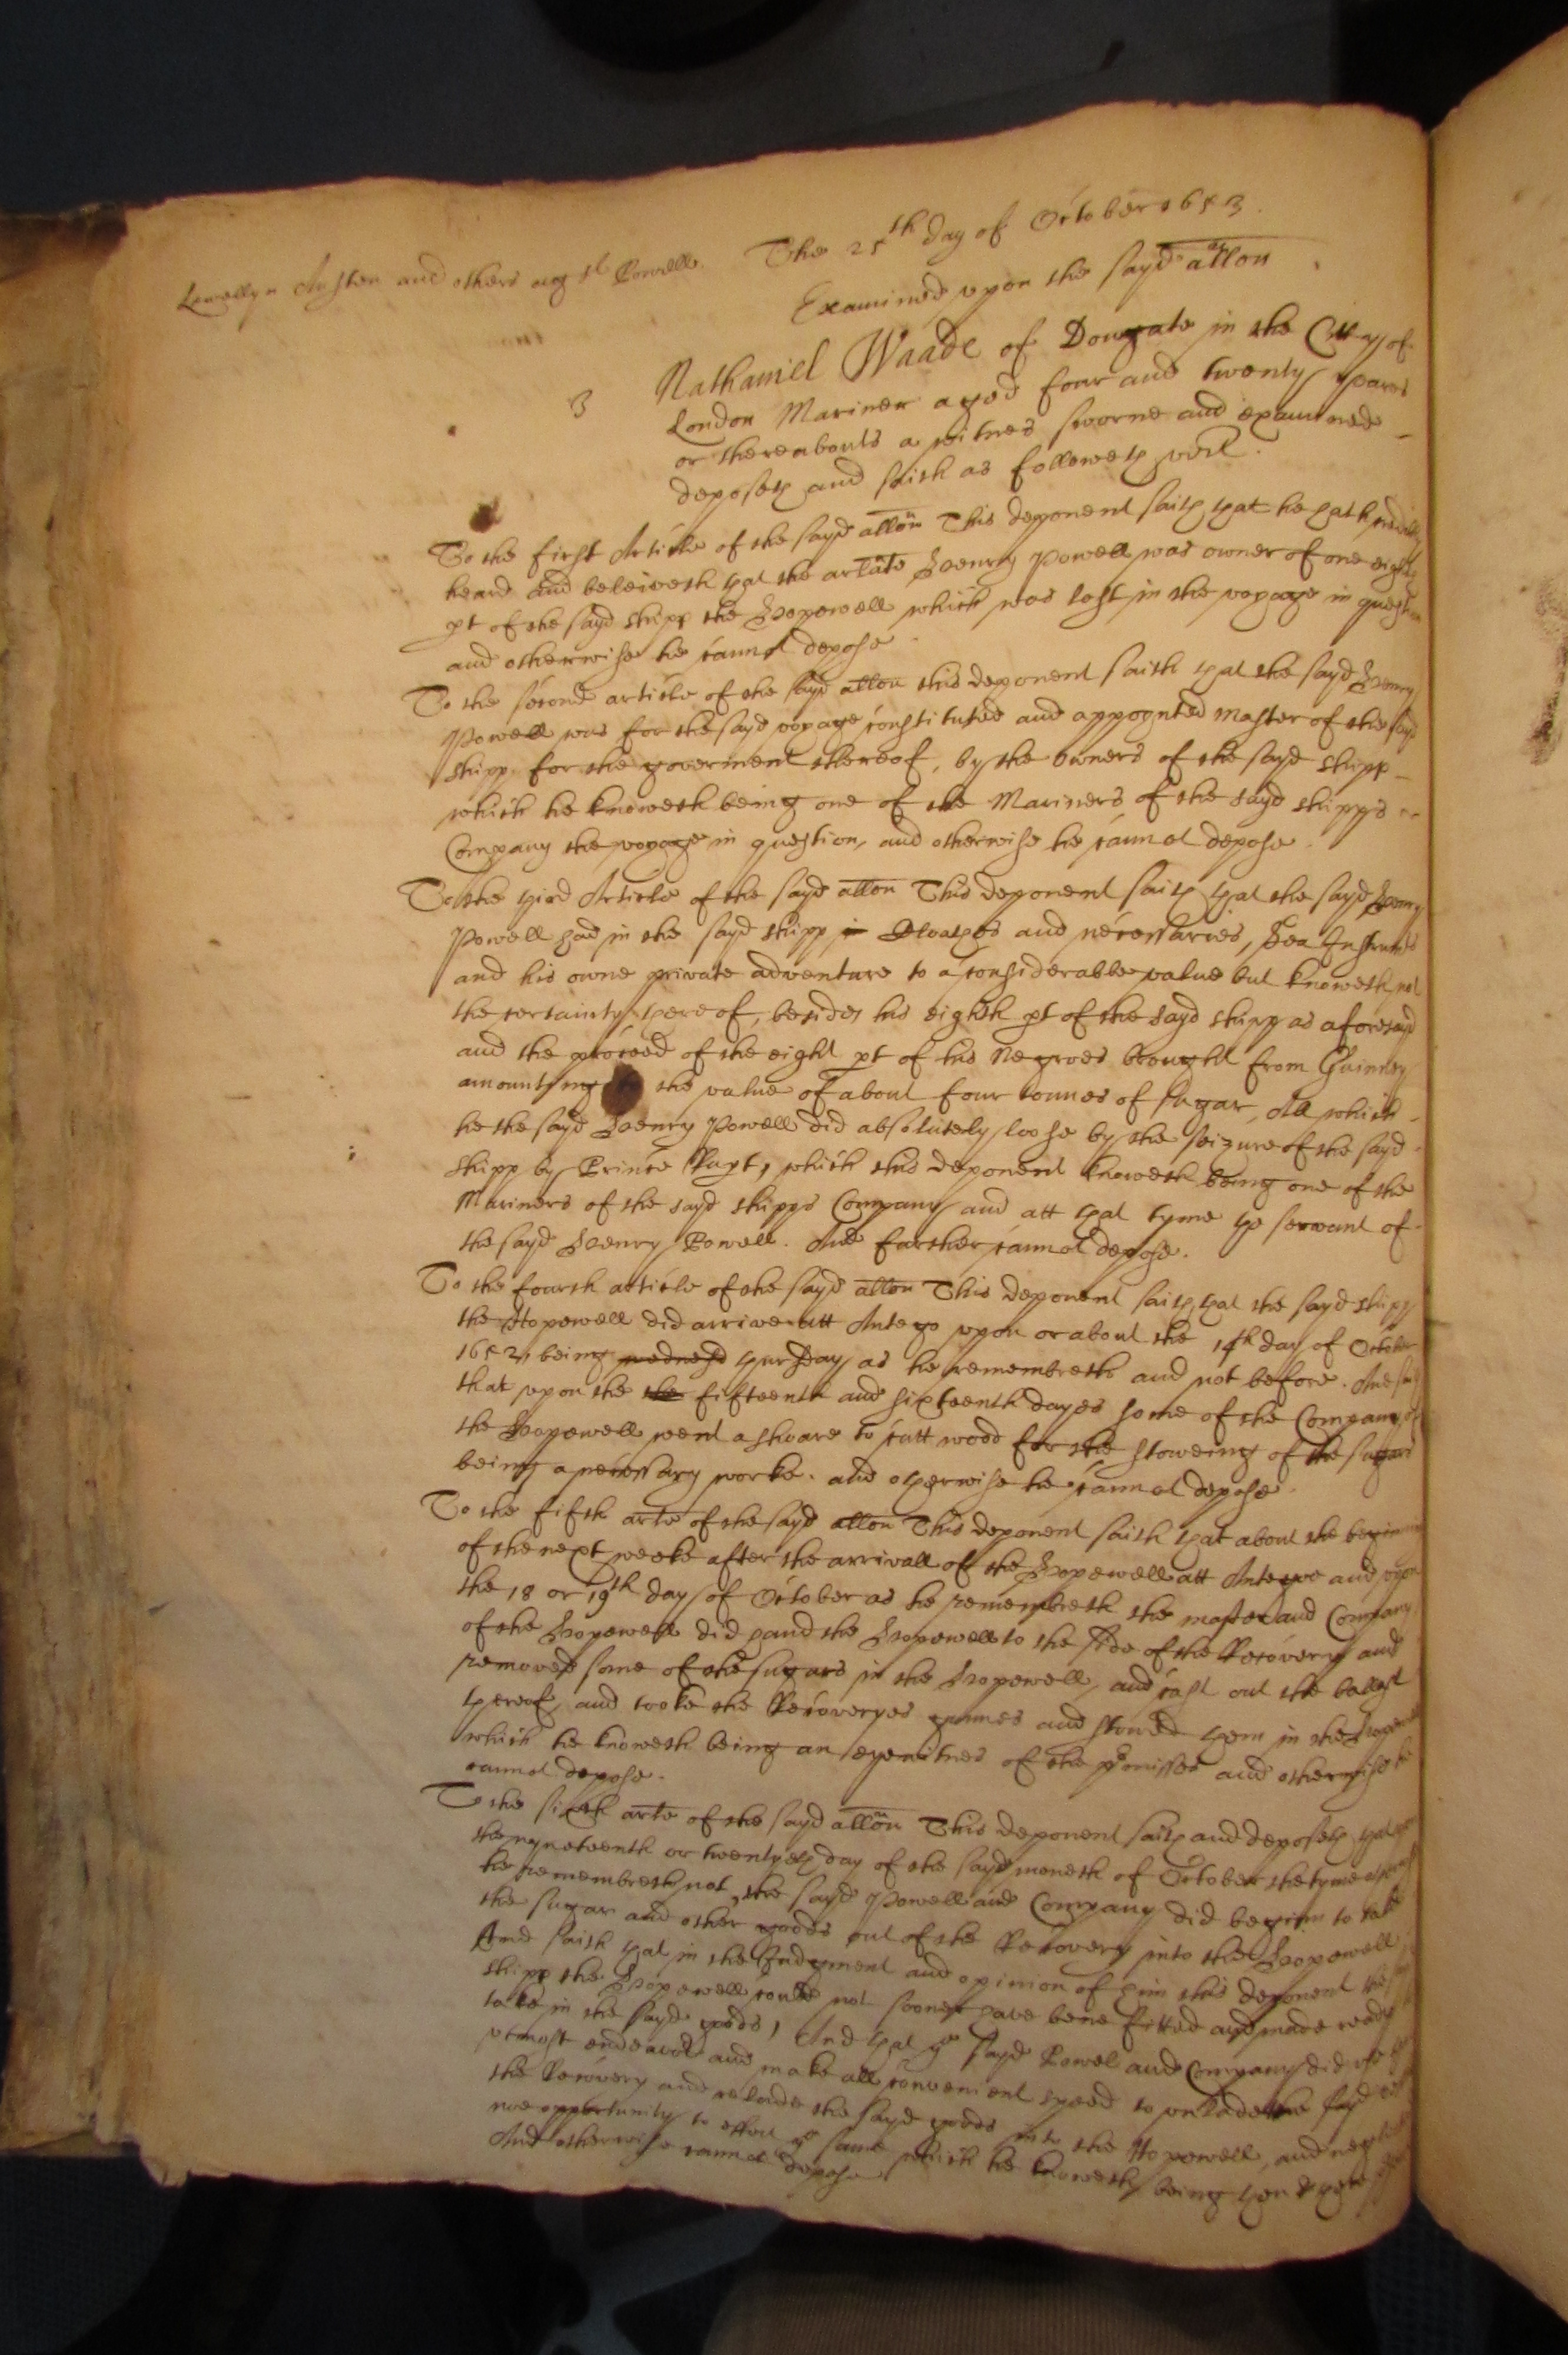 The 25th day of October 1653.
Lewellyn Austen and others agst Powell.
Examined upon the sayd allon
3
Nathaniel Waade of Dowgate in the Citty of
London Mariner aged four and twenty yeares
or thereabouts a witnes sworne and examined
deposeth and saith as followeth vizt.
To the first Article of the sayd allon This deponent saith that he hath
heard and beleiveth that the arlate Henry Powell was owner of one eighth
pt of the sayd shipp the Hopewell which was lost in the voyage in question
and otherwise he cannot depose
To the second article of the sayd allon this deponent saith that the sayd Henry
Powell was for the sayd voyage constituted and appoynted Master of the sayd
shipp for the goverment thereof, by the owners of the sayd shipp
which he knoweth being one of the Mariners of the sayd shipps
Company the voyage in question, and otherwise he cannot depose.
To the third Article of the sayd allon This deponent saith that the sayd Henry
Powell had in the sayd shipp in Cloathes and necessaries, Sea Instrumts
and his owne private adventure to a considerable value but knoweth not
the certainty thereof, besides his eighth pt of the sayd shipp as aforesayd
and the proceed of the eight pt of his Negroes brought from Guinney
amounting the value of about four tonnes of sugar, All which
he the sayd Henry Powell did absolutely loose by the seizure of the sayd
shipp by Prince Rupt, which this deponent knoweth being one of the
Mariners of the sayd shipps Company and att that tyme the servant of
the sayd Henry Powell. And farther cannot depose.
To the fourth article of the sayd allon This deponent saith that the sayd shipp
the Hopewell did arrive att Antego upon or about the 14th day of October
1652, being wednesd thursday as he remembreth and not before. And
that upon the the fifteenth and sixteenth dayes some of the Company of
the Hopewell went ashoare to cutt wood for the stoweing of the sugars
being a necessary worke. and otherwise he cannot depose.
To the fifth arte of the sayd allon This deponent saith that about the beginning
of the next weeke after the arrivall of the Hopewell att Antegoe and upon
the 18 or 19th day of October as he remembreth the master and Company
of the Hopewell did hand the Hopewell to the side of the Recovery and
removed some of the sugars in the Hopewell, and cast out the ballast
thereof, and tooke the Recoveryes gunnes and stowed them in the Hopewell
which he knoweth being an eyewitnes of the premisses and otherwise he
cannot depose.
To the sixth arte of the sayd allon This deponent saith and deposeth that upon
the nyneteenth or twentyeth day of the sayd moneth of October the tyme
he remembreth not, the sayd Powell and Company did beginn to take
the sugar and other goods out of the Recovery into the Hopewell
And saith that in the Judgment and opinion of him this deponent the
shipp the Hopewell could not sooner have bene fitted and made ready
take in the sayd goods, And that ye sayd Powel and Company did use
utmost endeavor and make all convenient speed to unlade the sayd
the Recovery and relade the sayd goods into the Hopewell, and neglected
noe opportunity to effect ye same which he knoweth being then & there
And otherwise cannot depose